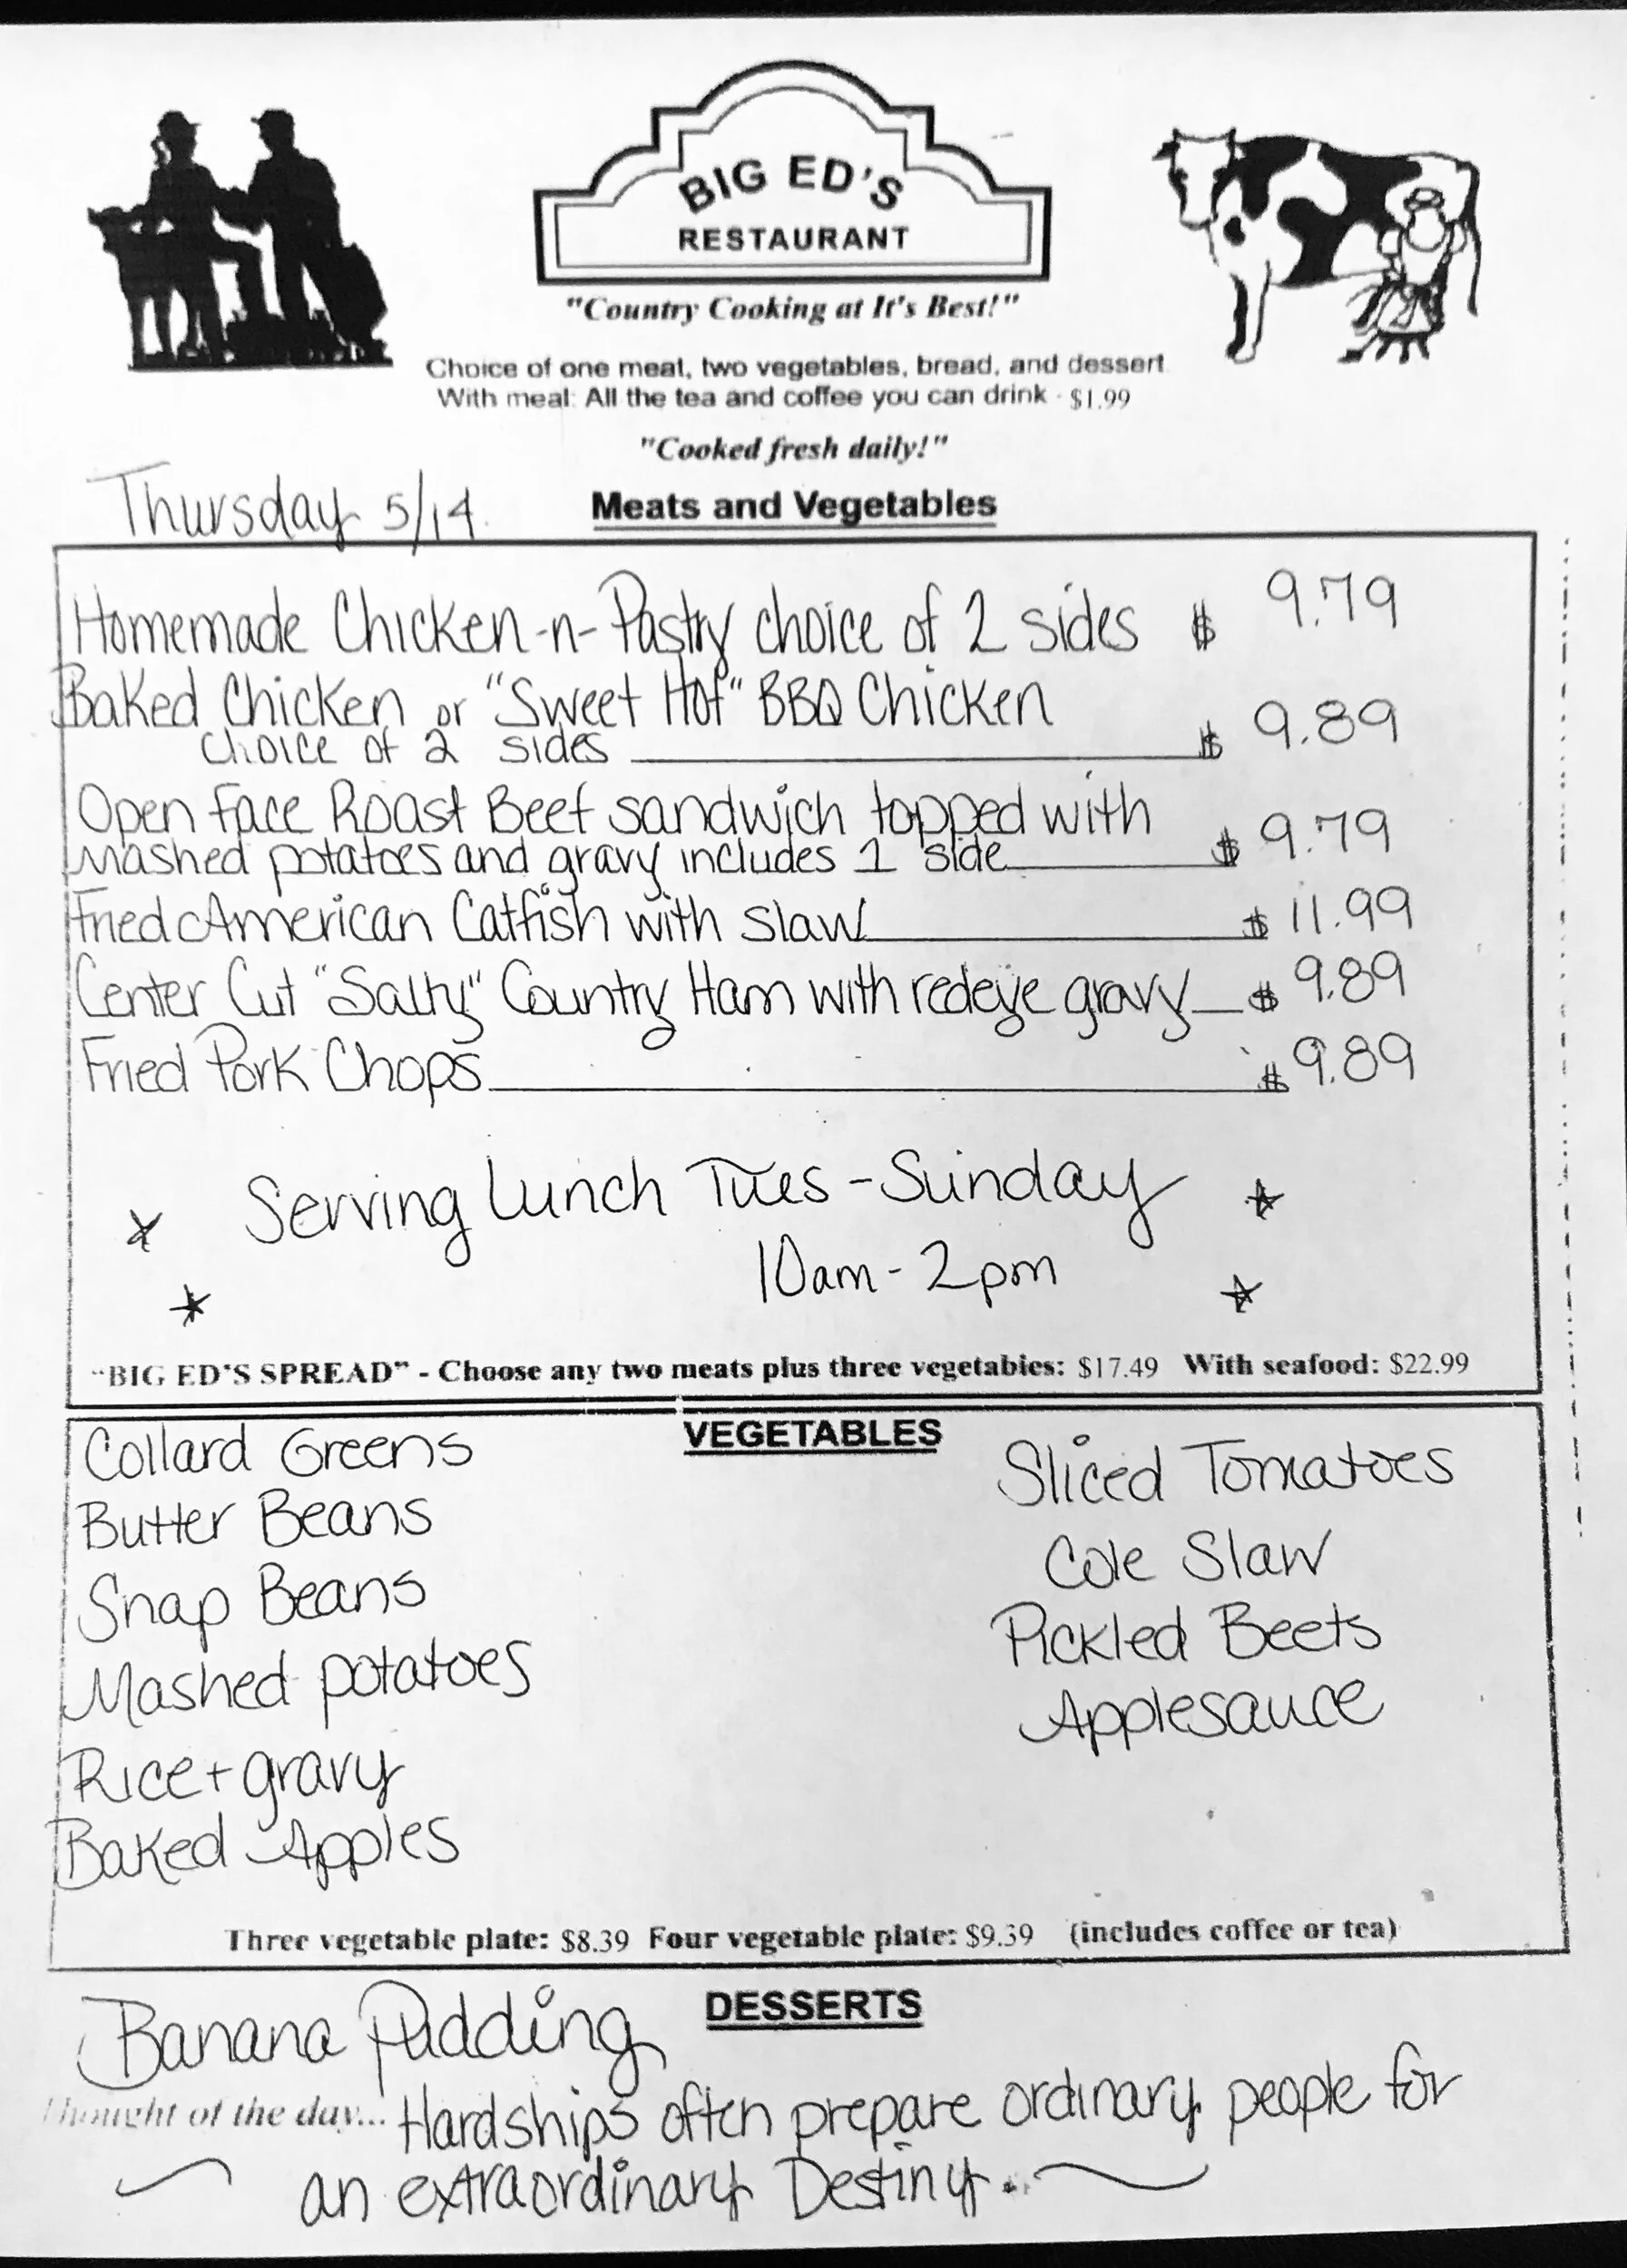 BIG ED'S
RESTAURANT
"Country Cooking at It's Best!"
Choice of one meat, two vegetables, bread, and dessert
With meal: All the tea and coffee you can drink - $1.99
"Cooked fresh daily!"
Thursday 5/14
Meats and Vegetables
Homemade Chicken-n-Pastry choice of 2 sides $ 9.79
Baked Chicken or "Sweet Hot" BBQ Chicken
choice of 2 sides $ 9.89
Open Face Roast Beef sandwich topped with
mashed potatoes and gravy includes 1 side $ 9.79
Fried American Catfish with slaw $ 11.99
Center Cut "Salty" Country Ham with redeye gravy $ 9.89
Fried Pork Chops $ 9.89
Serving Lunch Tues - Sunday
10am - 2pm
"BIG ED'S SPREAD" - Choose any two meats plus three vegetables: $17.49 With seafood: $22.99
VEGETABLES
Collard Greens
Butter Beans
Snap Beans
Mashed potatoes
Rice + gravy
Baked Apples
Sliced Tomatoes
Cole Slaw
Pickled Beets
Applesauce
Three vegetable plate: $8.39 Four vegetable plate: $9.39 (includes coffee or tea)
DESSERTS
Banana Pudding
Thought of the day... Hardships often prepare ordinary people for
an extraordinary Destiny..